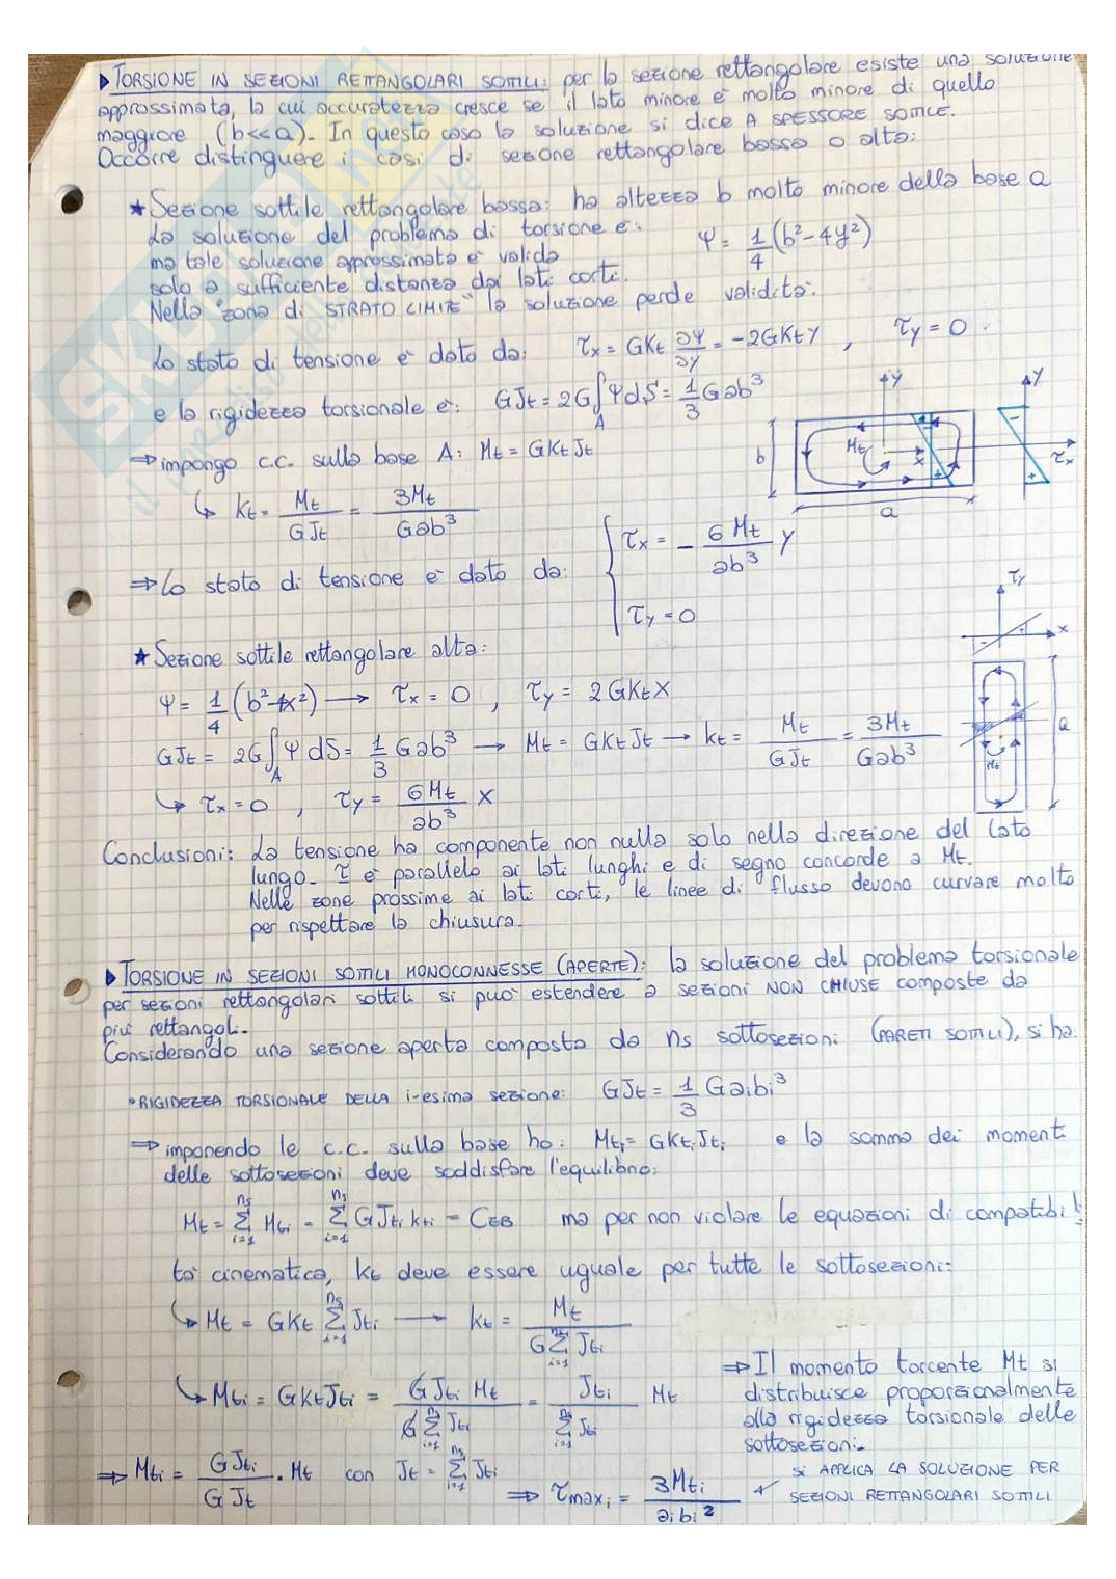 ▶TORSIONE IN SEZIONI RETTANGOLARI SOTTILI: per la sezione rettangolare esiste una soluzione
approssimata, la cui accuratezza cresce se il lato minore è molto minore di quello
maggiore (b<<a). In questo caso la soluzione si dice A SPESSORE SOTTILE.
Occorre distinguere i casi di sezione rettangolare bassa o alta:
★ Sezione sottile rettangolare bassa: ha altezza b molto minore della base a
La soluzione del problema di torsione è: Ψ = 1/4 (b²-4y²)
ma tale soluzione approssimata è valida
solo a sufficiente distanza dai lati corti.
Nella "zona di STRATO LIMITE" la soluzione perde validità.
Lo stato di tensione è dato da: τx = GKt ∂Ψ/∂y = -2GKty , τy = 0
e la rigidezza torsionale è: GJt = 2G∫A Ψ dS = 1/3 Gab³
⇒ impongo c.c. sulla base A: Mt = GKtJt
↳ Kt = Mt/GJt = 3Mt/Gab³
⇒ Lo stato di tensione è dato da: { τx = - 6Mt/ab³ y
τy = 0
y y b Mt x τx a - +
★ Sezione sottile rettangolare alta:
τy x - + a Mt
Ψ = 1/4 (b²-4x²) → τx = 0 , τy = 2GKtx
GJt = 2G∫A Ψ dS = 1/3 Gab³ → Mt = GKtJt → kt = Mt/GJt = 3Mt/Gab³
↳ τx = 0 , τy = 6Mt/ab³ x
Conclusioni: La tensione ha componente non nulla solo nella direzione del lato
lungo. τ è parallela ai lati lunghi e di segno concorde a Mt.
Nelle zone prossime ai lati corti, le linee di flusso devono curvare molto
per rispettare la chiusura.
▶TORSIONE IN SEZIONI SOTTILI MONOCONNESSE (APERTE): la soluzione del problema torsionale
per sezioni rettangolari sottili si può estendere a sezioni NON CHIUSE composte da
più rettangoli.
Considerando una sezione aperta composta da ns sottosezioni (PARETI SOTTILI), si ha:
•RIGIDEZZA TORSIONALE DELLA i-esima sezione: GJt = 1/3 Gaibi³
⇒ imponendo le c.c. sulla base ho: Mti = GKtiJti e la somma dei momenti
delle sottosezioni deve soddisfare l'equilibrio:
Mt = Σ(i=1)^ns Mti = Σ(i=1)^ns GJti kti = ma per non violare le equazioni di compatibili
tà cinematica, kt deve essere uguale per tutte le sottosezioni:
↳ Mt = GKt Σ(i=1)^ns Jti → kt = Mt/GΣ(i=1)^ns Jti
↳ Mti = GKtJti = GJti Mt/GΣ(i=1)^ns Jti = Jti/Σ(i=1)^ns Jti Mt
⇒ Il momento torcente Mt si
distribuisce proporzionalmente
alla rigidezza torsionale delle
sottosezioni.
⇒ Mti = GJti/GJt · Mt con Jt = Σ(i=1)^ns Jti
⇒ τmaxi = 3Mti/aibi²
SI APPLICA LA SOLUZIONE PER
SEZIONI RETTANGOLARI SOTTILI